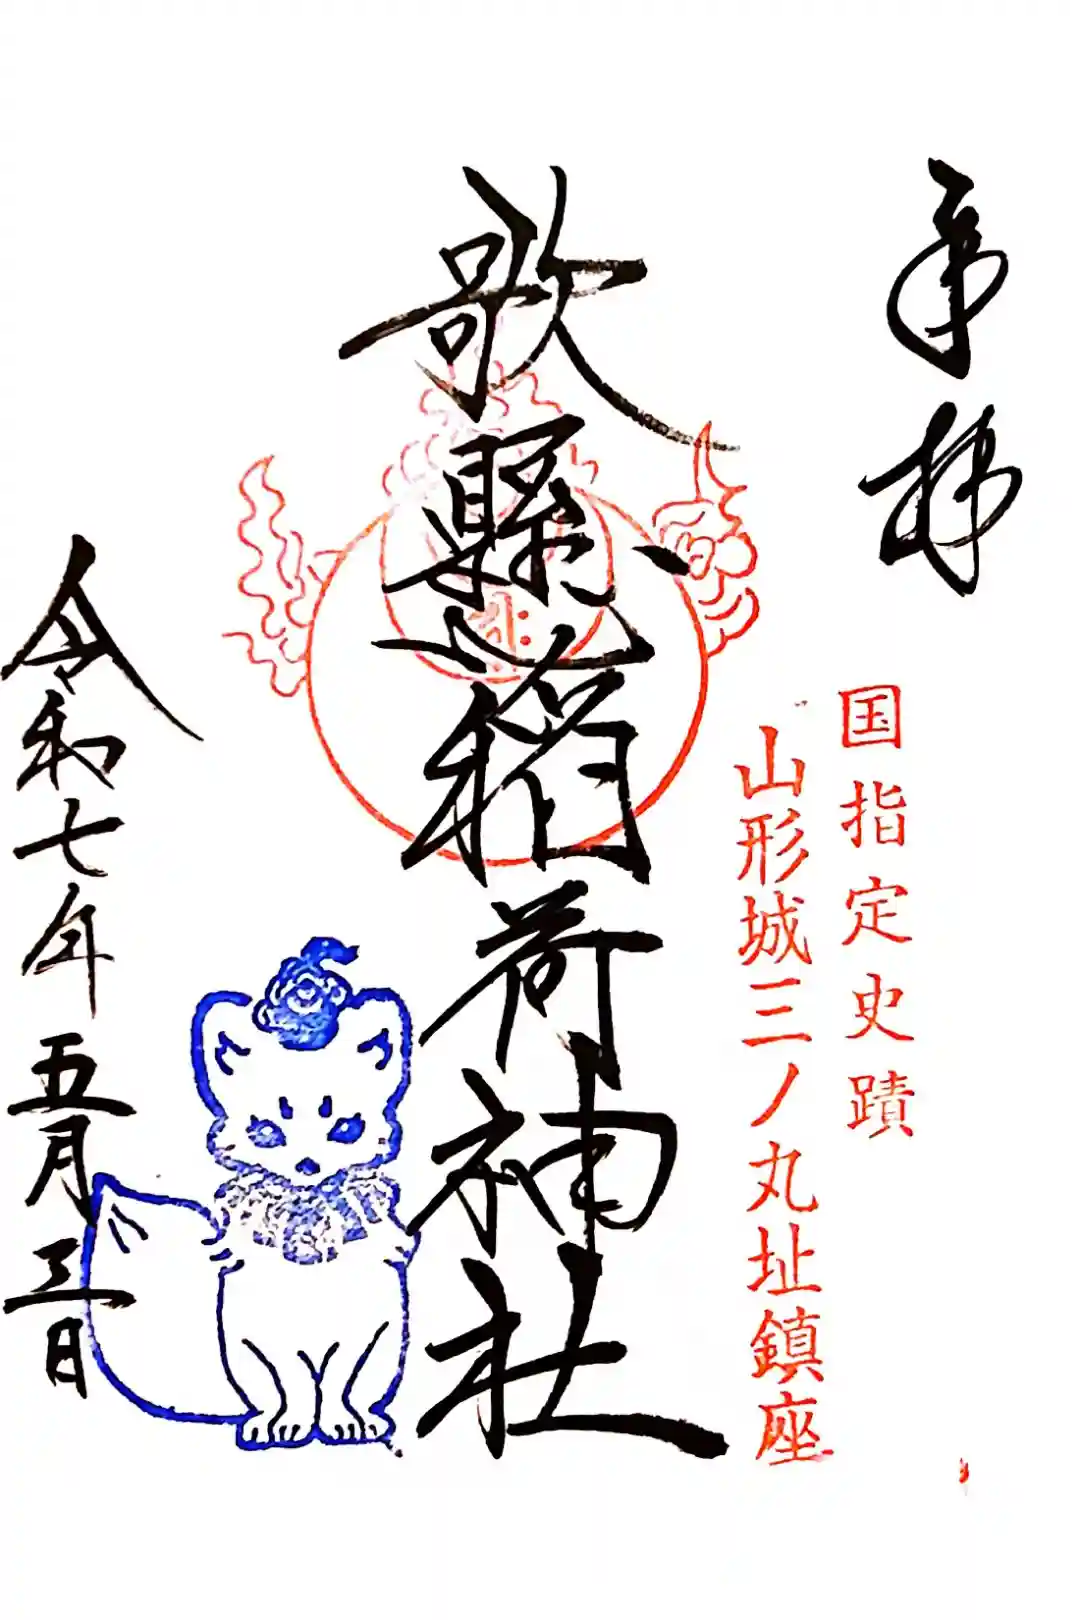 奉拝
国指定史蹟
山形城三ノ丸址鎮座
歌懸稲荷神社
令和七年五月三日